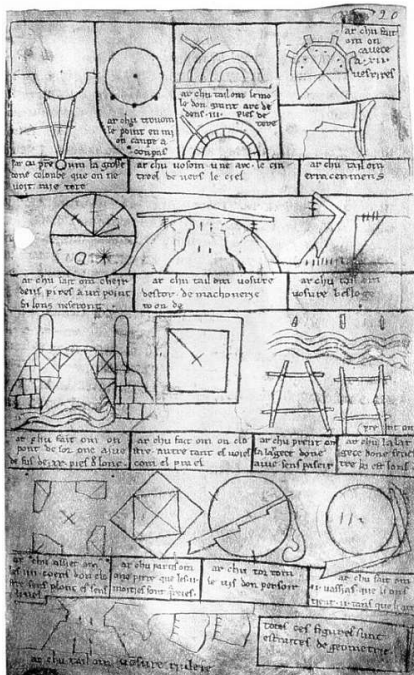 20
ar chu fait
om on
cavece
a . xii .
vesrires
ar chu tail om le mo
le don grant arc de
dens . iii . pies de
tere
ar chu trouom
le point en mi
on caupe a
conpas
ar cu pre om la grosse
done colonbe que on ne
voit mie tote
ar chu vosom une arc . le cin
treel de vers le ciel
ar chu tail om
erracemens
ar chu fait om cheir
deus pires a un point
si lons ne seront
ar chu tail om vosure
destor . de machonerie
roonde
ar chu tail om
vosure besloge
ar chu fait om on
pont de sor one aive
de fus de . xx . pies d lonc
ar chu fait om on clo
tre autre tant es voies
com el prael
ar chu prent om
la largece done
aive sens paseir
ar chu prent om
la lar
gece done fenes
tre ki est lons
ar chu assiet om
les . iiii . coens don clo
stre sens plonc et sens
livel
ar chu partis om
one pirre que les . ii .
moities sont
ar chu tor tom
le vis don persoir
ar chu fait om
. ii . vassias que li ons
tient . ii . tans que li
ar chu tail om vosure riulete
totes ces figures sunt
estraites de geometrie .